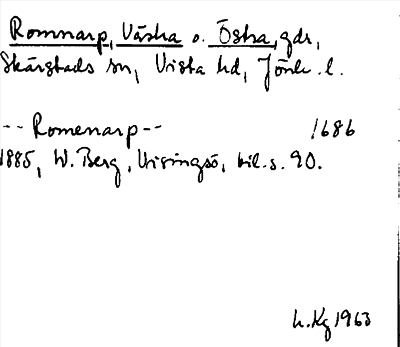 Romnarp, Västra o. Östra, gdr,
Skärstads sn, Vista hd, Jönk. l.
-- Romenarp -- 1686
1885, W. Berg, Visingsö, bil. s. 90.
L. Kg 1963